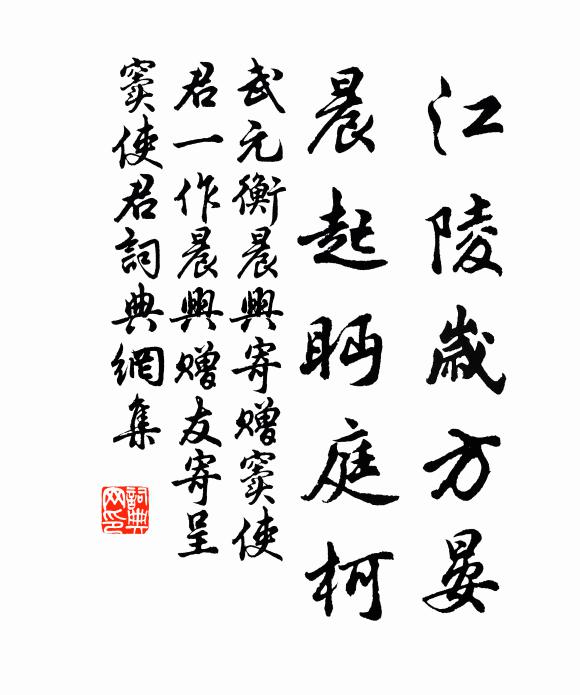 江陵歲方晏
晨起眄庭柯
武元衡晨興寄贈竇使
君一作晨興贈友寄呈
竇使君詞典網集
詞典
网印